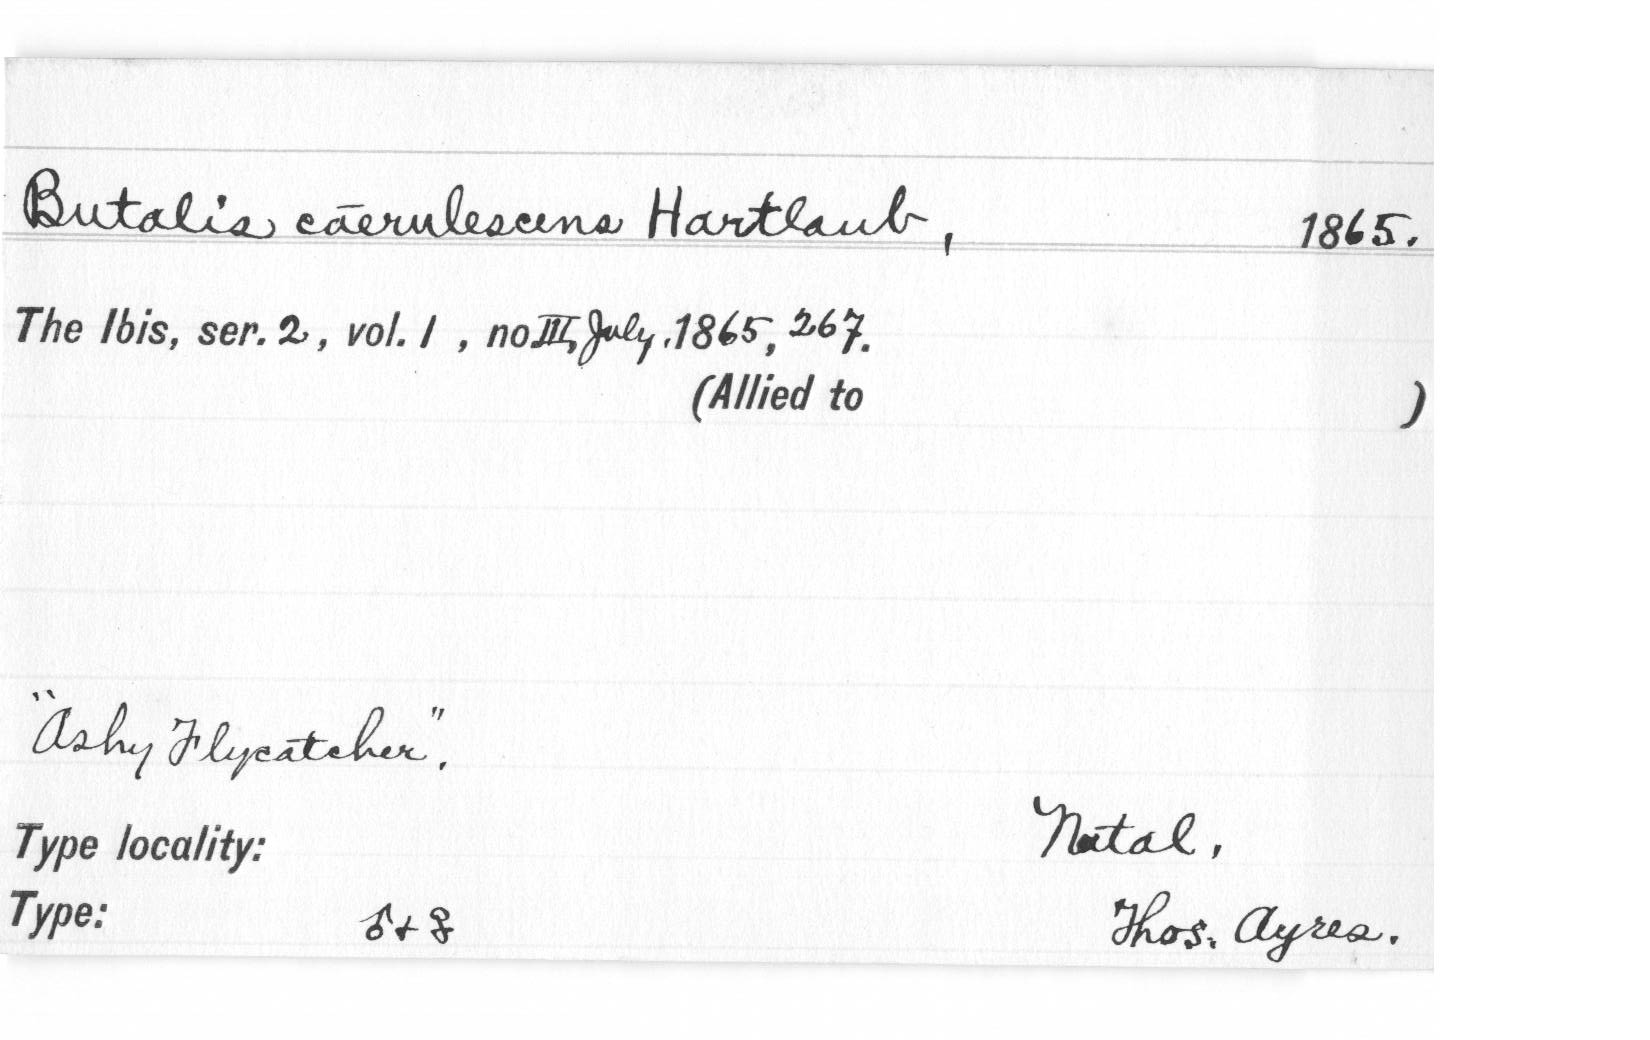 Butalis caerulescens Hartlaub, 1865.
The Ibis, ser. 2, vol. 1, no III, July, 1865, 267.
(Allied to )
"Ashy Flycatcher".
Type locality: Natal.
Type: ♂ + ♀ Thos. Ayres.